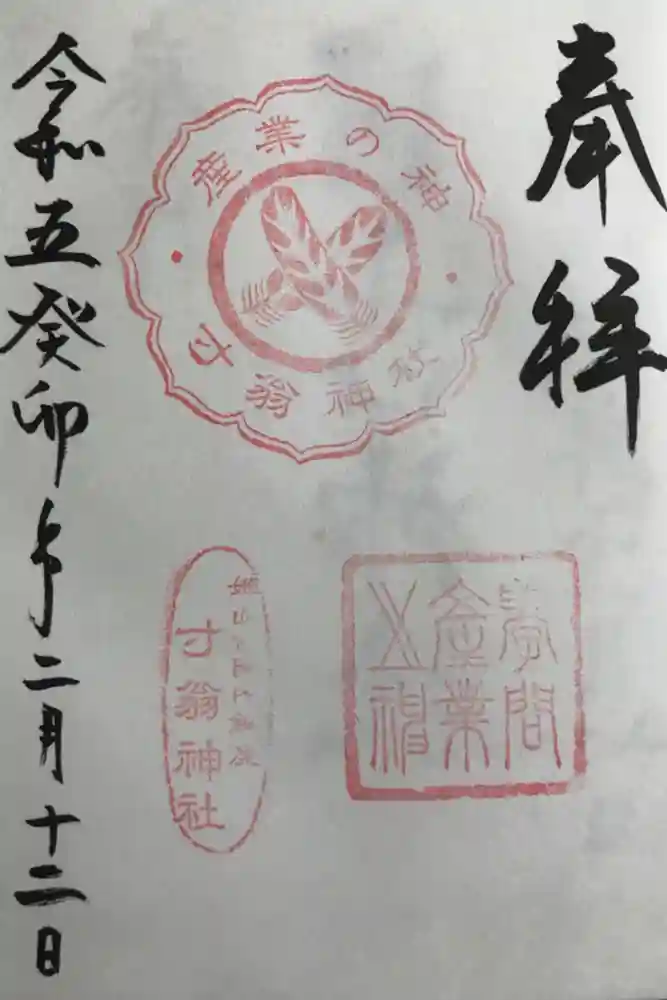 奉拝
産業の神
寸翁神社
学問
産業
五神
寸翁神社
令和五癸卯年二月十二日